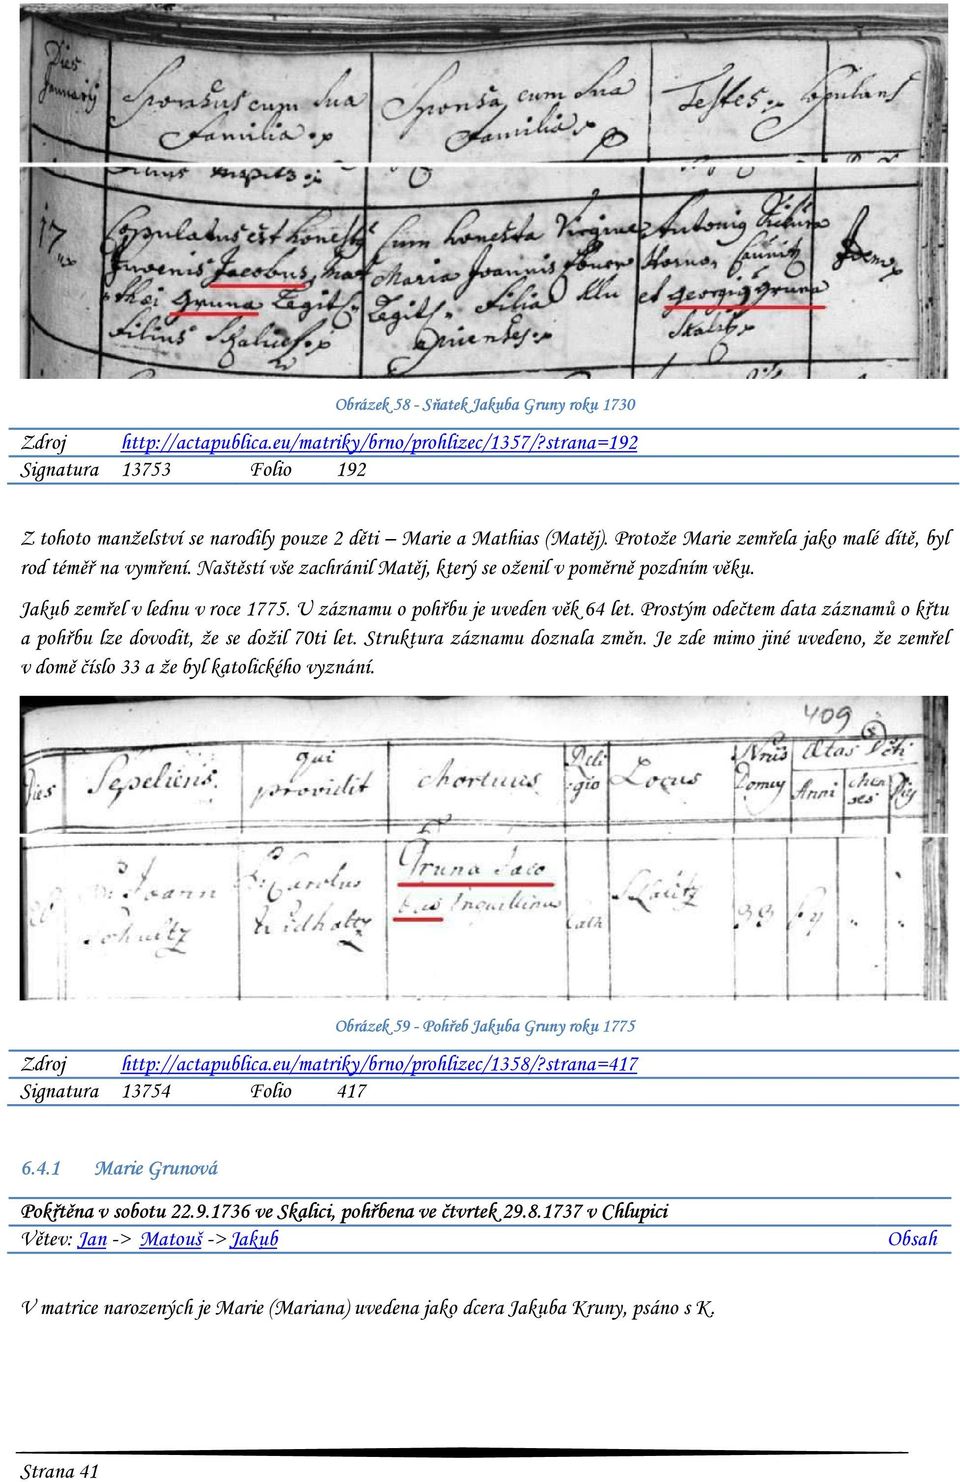 Dies Sponsus cum sua Sponsa cum sua Testes Copulans
January Familia Familia
17 Copulatus est honestus Cum honesta Virgine Antonig
Juvenis Jacobus Mat Maria Joannis Idem
thæi Gruna Legit Legit Filia et Georgig Gruna
Filius Skalit
Obrázek 58 - Sňatek Jakuba Gruny roku 1730
Zdroj http://actapublica.eu/matriky/brno/prohlizec/1357/?strana=192
Signatura 13753 Folio 192
Z tohoto manželství se narodily pouze 2 děti – Marie a Mathias (Matěj). Protože Marie zemřela jako malé dítě, byl
rod téměř na vymření. Naštěstí vše zachránil Matěj, který se oženil v poměrně pozdním věku.
Jakub zemřel v lednu v roce 1775. U záznamu o pohřbu je uveden věk 64 let. Prostým odečtem data záznamů o křtu
a pohřbu lze dovodit, že se dožil 70ti let. Struktura záznamu doznala změn. Je zde mimo jiné uvedeno, že zemřel
v domě číslo 33 a že byl katolického vyznání.
409
Dies Sepeliens qui providit Mortuus Religio Locus Nrus Domus Ætas
Anni Menses
Joann Carolus Gruna Jaco
Schultz bus Inquilinus Cath Skalitz 33 64
Obrázek 59 - Pohřeb Jakuba Gruny roku 1775
Zdroj http://actapublica.eu/matriky/brno/prohlizec/1358/?strana=417
Signatura 13754 Folio 417
6.4.1 Marie Grunová
Pokřtěna v sobotu 22.9.1736 ve Skalici, pohřbena ve čtvrtek 29.8.1737 v Chlupici
Větev: Jan -> Matouš -> Jakub Obsah
V matrice narozených je Marie (Mariana) uvedena jako dcera Jakuba Kruny, psáno s K.
Strana 41